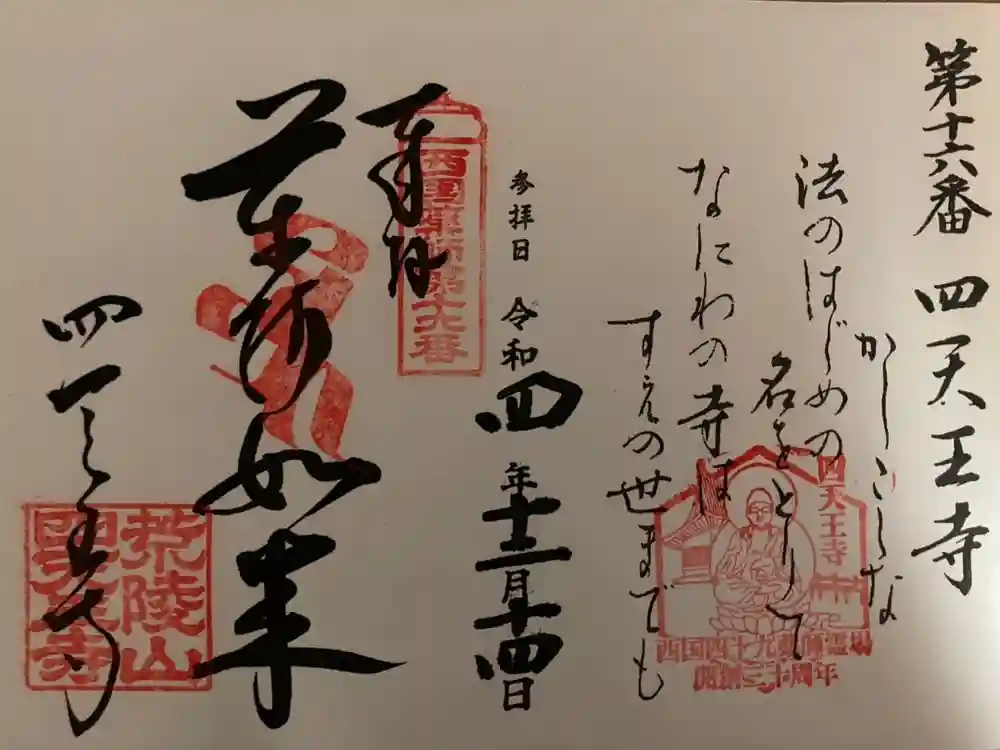 第十六番 四天王寺
かしこくな
法のはじめの
名をとりて
なにわの寺は
すえの世までも
四天王寺
西国四十九薬師霊場
開創三十周年
参拝日 令和四年十二月十四日
奉拝
西国薬師第十六番
薬師如来
四天王寺
荒陵山
四天王寺